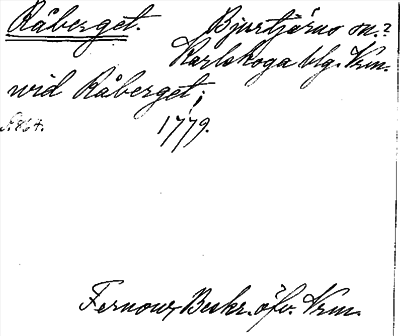 Råberget. Bjurtjärns sn.?
Karlskoga blg. Vrm.
wid Råberget;
S. 864. 1779.
Fernow, Beskr. öfv. Vrm.